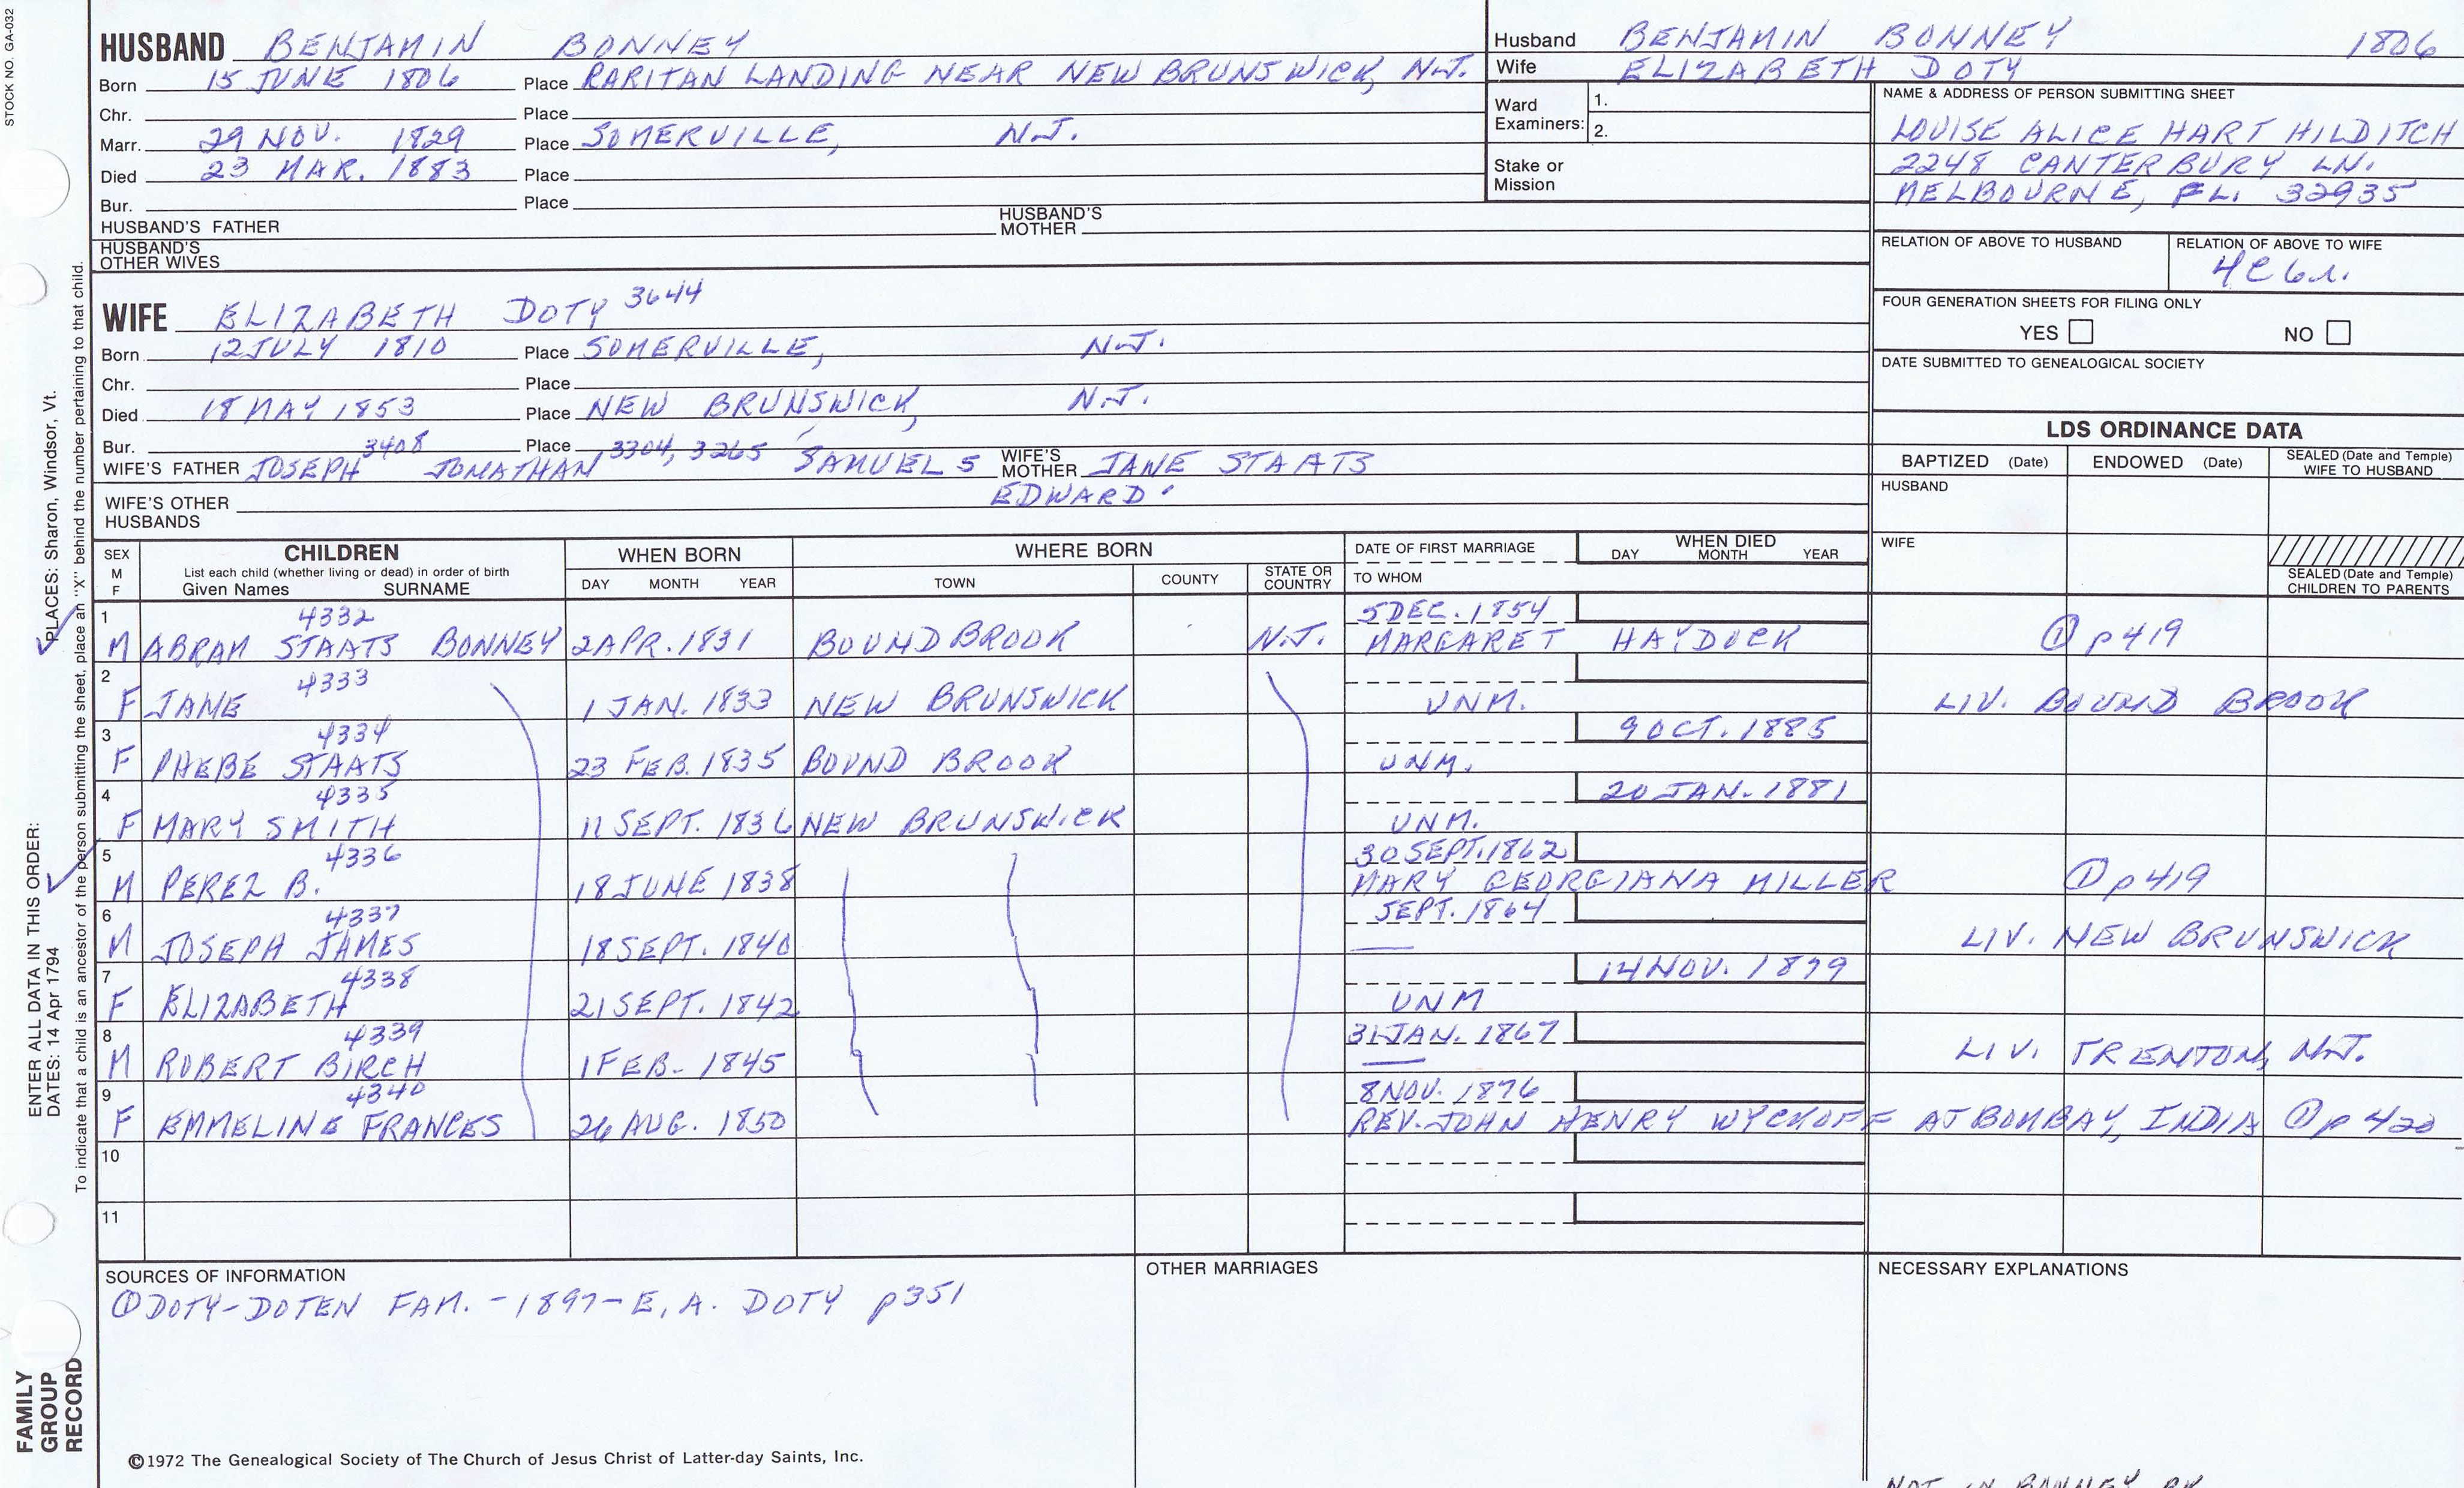 STOCK NO. GA-032
HUSBAND BENJAMIN BONNEY
Born 15 JUNE 1806 Place RARITAN LANDING NEAR NEW BRUNSWICK, N.J.
Chr. Place
Marr. 29 NOV. 1829 Place SOMERVILLE, N.J.
Died 23 MAR. 1883 Place
Bur. Place
HUSBAND'S FATHER HUSBAND'S MOTHER
HUSBAND'S OTHER WIVES
Husband BENJAMIN BONNEY 1806
Wife ELIZABETH DOTY
Ward Examiners: 1.
2.
Stake or Mission
NAME & ADDRESS OF PERSON SUBMITTING SHEET
LOUISE ALICE HART HILDITCH
2248 CANTERBURY LN.
MELBOURNE, FL. 32935
RELATION OF ABOVE TO HUSBAND RELATION OF ABOVE TO WIFE
4C6r.
FOUR GENERATION SHEETS FOR FILING ONLY
YES NO
DATE SUBMITTED TO GENEALOGICAL SOCIETY
WIFE ELIZABETH DOTY 3644
Born 12 JULY 1810 Place SOMERVILLE, N.J.
Chr. Place
Died 18 MAY 1853 Place NEW BRUNSWICK, N.J.
Bur. Place
WIFE'S FATHER JOSEPH 3408 JONATHAN 3304, 3265 SAMUEL 5 WIFE'S MOTHER JANE STAATS
EDWARD
WIFE'S OTHER HUSBANDS
LDS ORDINANCE DATA
BAPTIZED (Date) ENDOWED (Date) SEALED (Date and Temple) WIFE TO HUSBAND
HUSBAND
WIFE
SEALED (Date and Temple) CHILDREN TO PARENTS
SEX M F CHILDREN WHEN BORN WHERE BORN DATE OF FIRST MARRIAGE WHEN DIED
List each child (whether living or dead) in order of birth
Given Names SURNAME DAY MONTH YEAR TOWN COUNTY STATE OR COUNTRY TO WHOM DAY MONTH YEAR
1 4332 5 DEC. 1854
M ABRAM STAATS BONNEY 2 APR. 1831 BOUND BROOK N.J. MARGARET HAYDOCK ① p 419
2 4333
F JANE 1 JAN. 1833 NEW BRUNSWICK UNM. LIV. BOUND BROOK
3 4334 9 OCT. 1885
F PHEBE STAATS 23 FEB. 1835 BOUND BROOK UNM.
4 4335 20 JAN. 1881
F MARY SMITH 11 SEPT. 1836 NEW BRUNSWICK UNM.
5 4336 30 SEPT. 1862
M PEREZ B. 18 JUNE 1838 MARY GEORGIANA MILLER ① p 419
6 4337 SEPT. 1864
M JOSEPH JAMES 18 SEPT. 1840 LIV. NEW BRUNSWICK
7 4338 14 NOV. 1879
F ELIZABETH 21 SEPT. 1842 UNM
8 4339 31 JAN. 1867
M ROBERT BIRCH 1 FEB. 1845 LIV. TRENTON, N.J.
9 4340 8 NOV. 1876
F EMMELINE FRANCES 26 AUG. 1850 REV. JOHN HENRY WYCKOFF AT BOMBAY, INDIA ① p 420
10
11
SOURCES OF INFORMATION
① DOTY-DOTEN FAM. - 1897 - E. A. DOTY p 351
OTHER MARRIAGES
NECESSARY EXPLANATIONS
NOT IN BONNEY BK
©1972 The Genealogical Society of The Church of Jesus Christ of Latter-day Saints, Inc.
FAMILY GROUP RECORD
ENTER ALL DATA IN THIS ORDER:
DATES: 14 Apr 1794 PLACES: Sharon, Windsor, Vt.
To indicate that a child is an ancestor of the person submitting the sheet, place an "X" behind the number pertaining to that child.